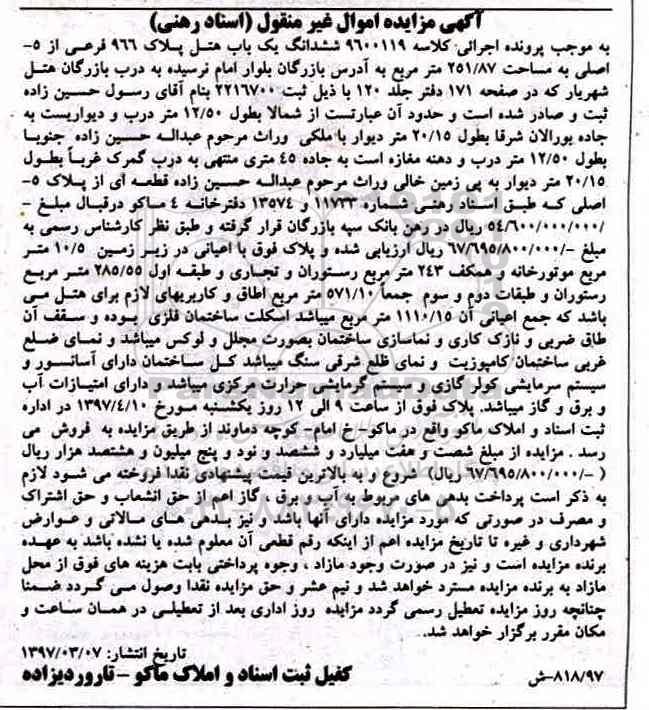 آگهی مزایده اموال غیر منقول (اسناد رهنی)
به موجب پرونده اجرائی کلاسه ۹۶۰۰۱۱۹ ششدانگ یک باب هتل پلاک ۹۶۶ فرعی از ۵-
اصلی به مساحت ۲۵۱/۸۷ متر مربع به آدرس بازرگان بلوار امام نرسیده به درب بازرگان هتل
شهریار که در صفحه ۱۷۱ دفتر جلد ۱۲۰ با ذیل ثبت ۲۲۱۶۷۰۰ بنام آقای رسول حسین زاده
ثبت و صادر شده است و حدود آن عبارتست از شمالا بطول ۱۲/۵۰ متر درب و دیواریست به
جاده یورالان شرقا بطول ۲۰/۱۵ متر دیوار با ملکی وراث مرحوم عبداله حسین زاده جنوبا
بطول ۱۲/۵۰ متر درب و دهنه مغازه است به جاده ۴۵ متری منتهی به درب گمرک غرباً بطول
۲۰/۱۵ متر دیوار به پی زمین خالی وراث مرحوم عبداله حسین زاده قطعه ای از پلاک ۵-
اصلی که طبق اسناد رهنی شماره ۱۱۷۳۳ و ۱۳۵۷۴ دفترخانه ۴ ماکو درقبال مبلغ -
/۵۴/۶۰۰/۰۰۰/۰۰۰ ریال در رهن بانک سپه بازرگان قرار گرفته و طبق نظر کارشناس رسمی به
مبلغ -/۶۷/۶۹۵/۸۰۰/۰۰۰ ریال ارزیابی شده و پلاک فوق با اعیانی در زیر زمین ۱۰/۵ متر
مربع موتورخانه و همکف ۲۴۳ متر مربع رستوران و تجاری و طبقه اول ۲۸۵/۵۵ متر مربع
رستوران و طبقات دوم و سوم جمعاً ۵۷۱/۱۰ متر مربع اطاق و کاربریهای لازم برای هتل می
باشد که جمع اعیانی آن ۱۱۱۰/۱۵ متر مربع میباشد اسکلت ساختمان فلزی بوده و سقف آن
طاق ضربی و نازک کاری و نماسازی ساختمان بصورت مجلل و لوکس میباشد و نمای ضلع
غربی ساختمان کامپوزیت و نمای ظلع شرقی سنگ میباشد کل ساختمان دارای آسانسور و
سیستم سرمایشی کولر گازی و سیستم گرمایشی حرارت مرکزی میباشد و دارای امتیازات آب
و برق و گاز میباشد. پلاک فوق از ساعت ۹ الی ۱۲ روز یکشنبه مورخ ۱۳۹۷/۴/۱۰ در اداره
ثبت اسناد و املاک ماکو واقع در ماکو- خ امام- کوچه دماوند از طریق مزایده به فروش می
رسد . مزایده از مبلغ شصت و هفت میلیارد و ششصد و نود و پنج میلیون و هشتصد هزار ریال
( -/۶۷/۶۹۵/۸۰۰/۰۰۰ ریال) شروع و به بالاترین قیمت پیشنهادی نقدا فروخته می شود لازم
به ذکر است پرداخت بدهی های مربوط به آب و برق ، گاز اعم از حق انشعاب و حق اشتراک
و مصرف در صورتی که مورد مزایده دارای آنها باشد و نیز بدهی های مالاتی و عوارض
شهرداری و غیره تا تاریخ مزایده اعم از اینکه رقم قطعی آن معلوم شده یا نشده باشد به عهده
برنده مزایده است و نیز در صورت وجود مازاد ، وجوه پرداختی بابت هزینه های فوق از محل
مازاد به برنده مزایده مسترد خواهد شد و نیم عشر و حق مزایده نقدا وصول می گردد ضمنا
چنانچه روز مزایده تعطیل رسمی گردد مزایده روز اداری بعد از تعطیلی در همان ساعت و
مکان مقرر برگزار خواهد شد.
تاریخ انتشار: ۱۳۹۷/۰۳/۰۷
۸۱۸/۹۷-ش کفیل ثبت اسناد و املاک ماکو -تاروردیزاده